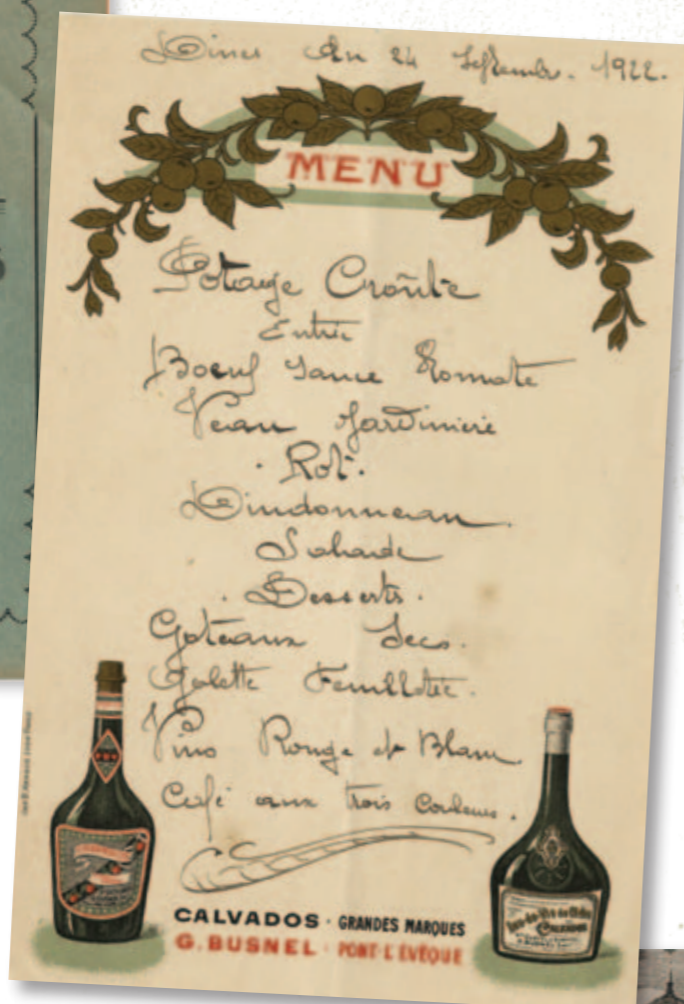 Diner du 24 Septembre. 1922.
MENU
Potage Croûte
Entrée
Boeuf Sauce Tomate
Veau Jardinière
. Rot .
Dindonneau.
Salade
. Desserts .
Gateaux Secs.
Galette Feuilletée.
Vins Rouge et Blanc
Café aux trois Couleurs.
CALVADOS · GRANDES MARQUES
G. BUSNEL · PONT-L'ÉVÊQUE